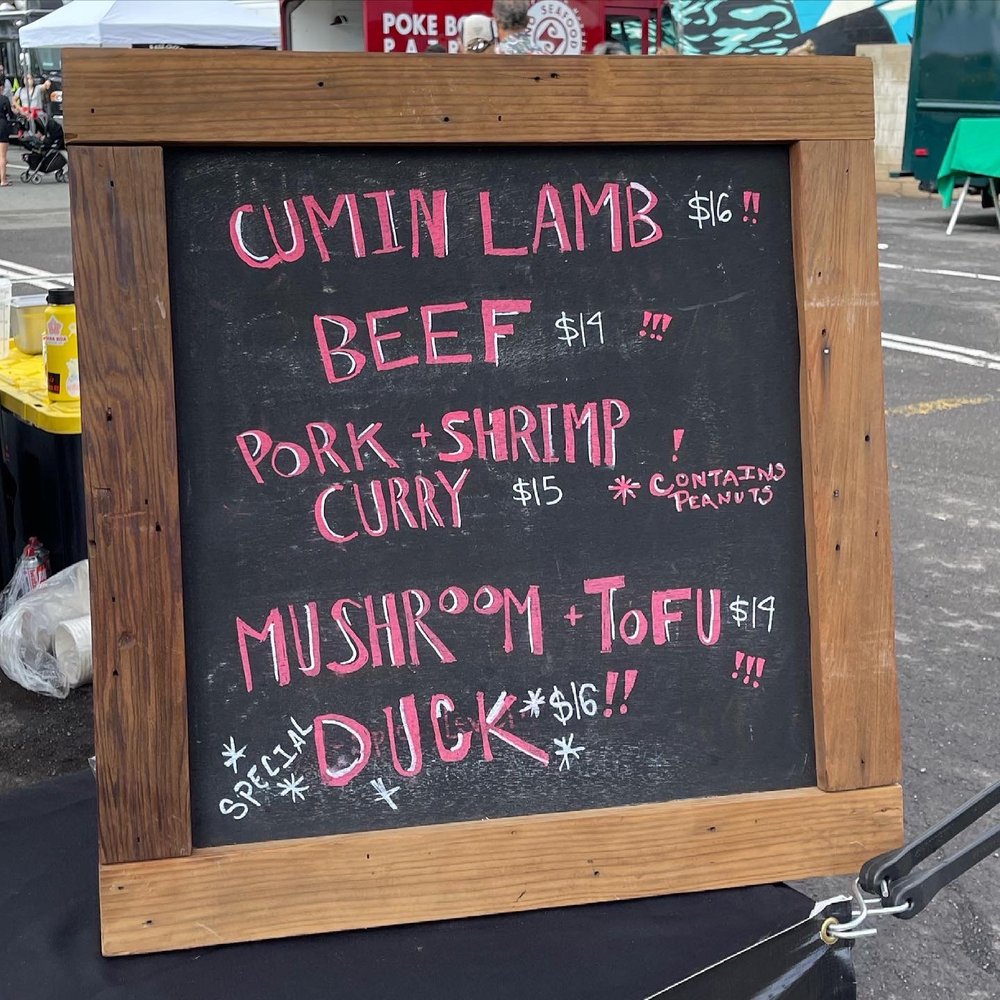 POKE BO
SEAFOOD
CUMIN LAMB $16 !!
BEEF $14 !!!
PORK + SHRIMP !
CURRY $15 * CONTAINS
PEANUTS
MUSHROOM + TOFU $14
!!!
* SPECIAL * DUCK * $16 !!